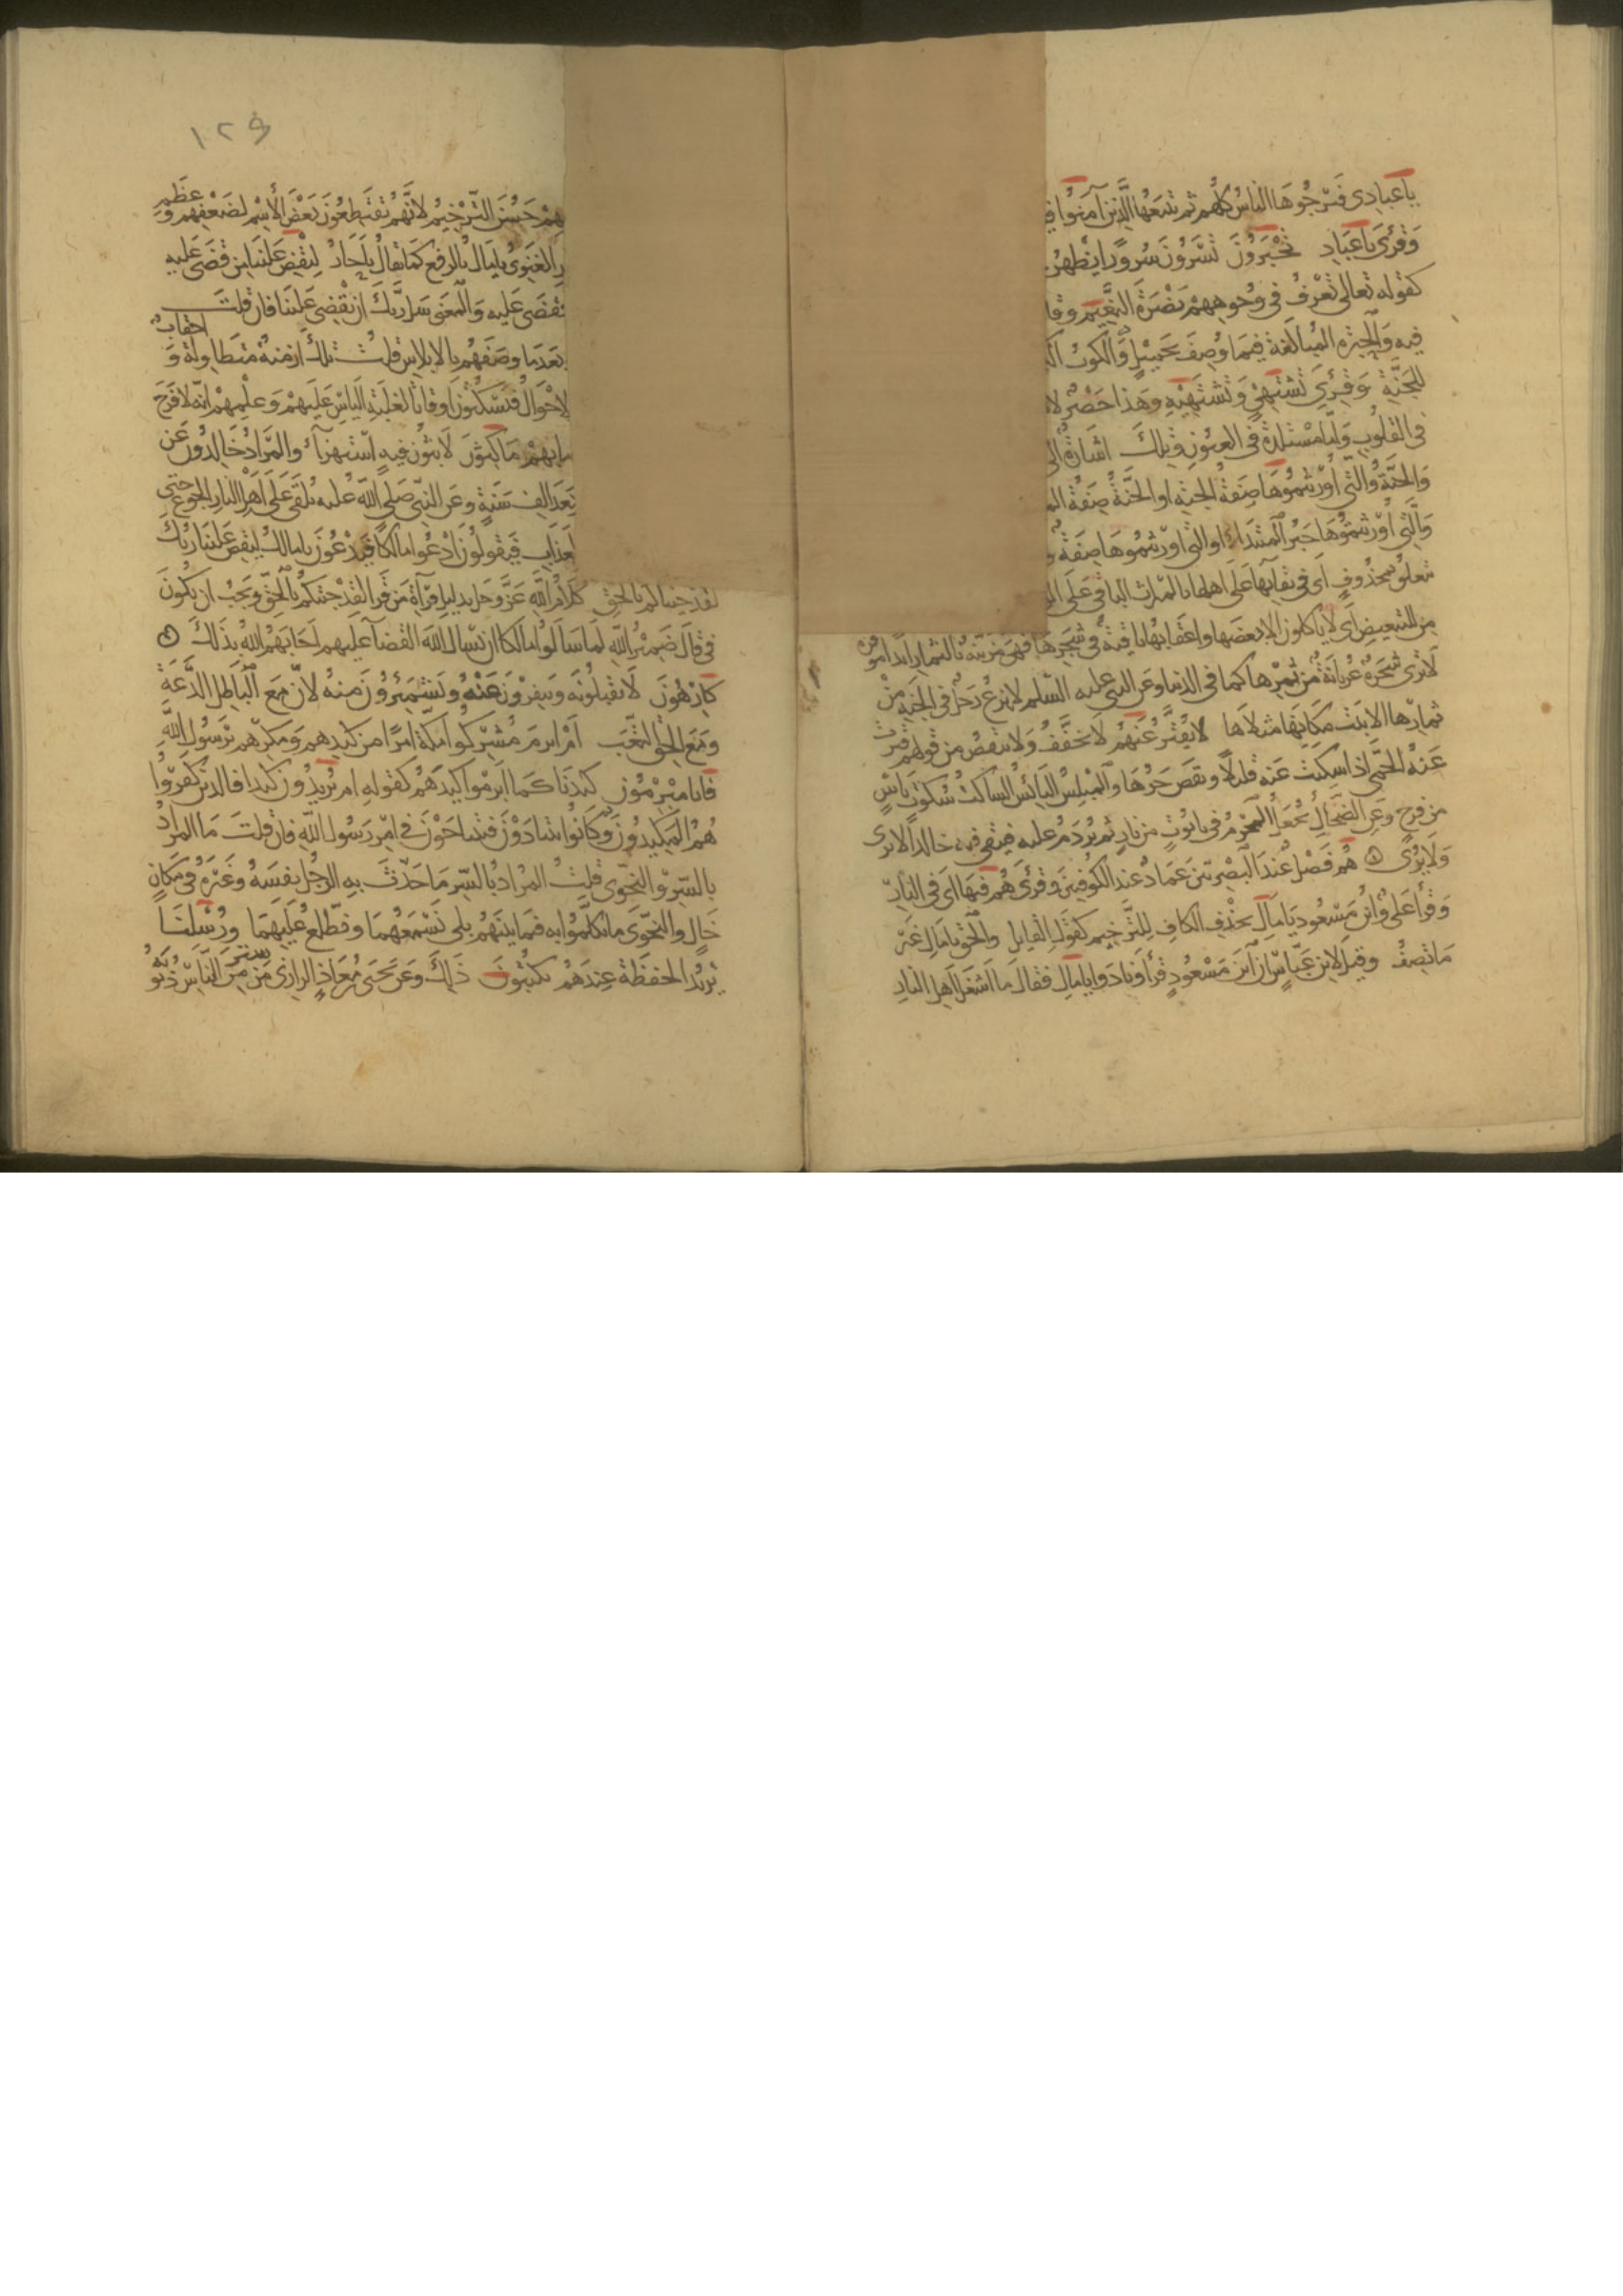 يا عبادي فيرجوها الناس كلهم ثم تتبعها الذين آمنوا
وقرئ يا عباد تحبرون تسرون سرورا يظهر
كقوله تعالى تعرف في وجوههم نضرة النعيم وقا
فيه والحبرة المبالغة فيما وصف بجميل والكوب
للجنة وقرئ تشتهي وتشتهيه وهذا حصر لا
في القلوب وإما مستلذة في العيون وتلك اشارة الى
والجنة والتي أورثتموها صفة الجنة او الجنة صفة
والتي أورثتموها خبر المبتدأ او التي اورثتموها صفة و
تتعلق بمحذوف اى في بقايها على اهلها بالميراث الباقي على
من للتبعيض اى لا ياكلون الا بعضها واعقابها باقية في شجرها فهى مزينة بالثمار ابدا موقرة
لا ترى شجرة عريانة من ثمرها كما في الدنيا وعن النبي عليه السلم لا ينزع رجل في الجنة من
ثمارها الا نبت مكانها مثلاها لا يفتر عنهم لا يخفف ولا ينقص من قولهم فترت
عنه الحمى اذا سكنت عنه قليلا ونقص حرها والمبلس اليائس الساكت سكوت ياس
من فرج وعن الضحاك يجعل المجرم في تابوت من نار ثم يردم عليه فيبقى فيه خالدا لا يرى
ولا يرى هم فصل عند البصريين عماد عند الكوفيين وقرئ هم فيها اى في النار
وقرأ على وابن مسعود يا مال بحذف الكاف للترخيم كقول القايل والحق يا مال غير
ما تصف وقيل لابن عباس ان ابن مسعود قرأ ونادوا يا مال فقال ما اشغل اهل النار
١٢٩
هم حسن الترخيم لانهم يقتطعون بعض الأسم لضعفهم وعظم
الغنوى يا مال بالرفع كما يقال يا حار ليقض علينا من قضى عليه
فقضى عليه والمعنى سل ربك ان يقضى علينا فان قلت
بعد ما وصفهم بالابلاس قلت تلك ازمنة متطاولة واحقاب
الاحوال فيسكتون اوقاتا لغلبة الياس عليهم وعلمهم انه لا فرج
ما بهم ماكثون لابثون فيه استهزاء والمراد خالدون عن
بعد الف سنة وعن النبي صلى الله عليه يلقى على اهل النار الجوع حتى
العذاب فيقولون ادعوا مالكا فيدعون يا مالك ليقض علينا ربك
لقد جيناكم بالحق كلام الله عز وجل بدليل قرآة من قرا لقد جئتكم بالحق ويجب ان يكون
في قال ضمير الله لما سالوا مالكا ان يسال الله القضآ عليهم اجابهم الله بذلك
كارهون لا تقبلونه وتنفرون عنه وتشمئزون منه لان مع الباطل الدعة
ومع الحق التعب ام ابرم مشركوا مكة امرا من كيدهم ومكرهم برسول الله
فانا مبرمون كيدنا كما ابرموا كيدهم كقوله ام يريدون كيدا فالذين كفروا
هم المكيدون وكانوا يتنادون فيتناجون في امر رسول الله فان قلت ما المراد
بالسر والنجوى قلت المراد بالسر ما حدث به الرجل نفسه وغيره في مكان
خال والنجوى ما تكلموا به فيما بينهم بلى نسمعهما ونطلع عليهما ورسلنا
يريد الحفظة عندهم يكتبون ذلك وعن يحيى بن معاذ الرازى من ستر من الناس ذنوبه